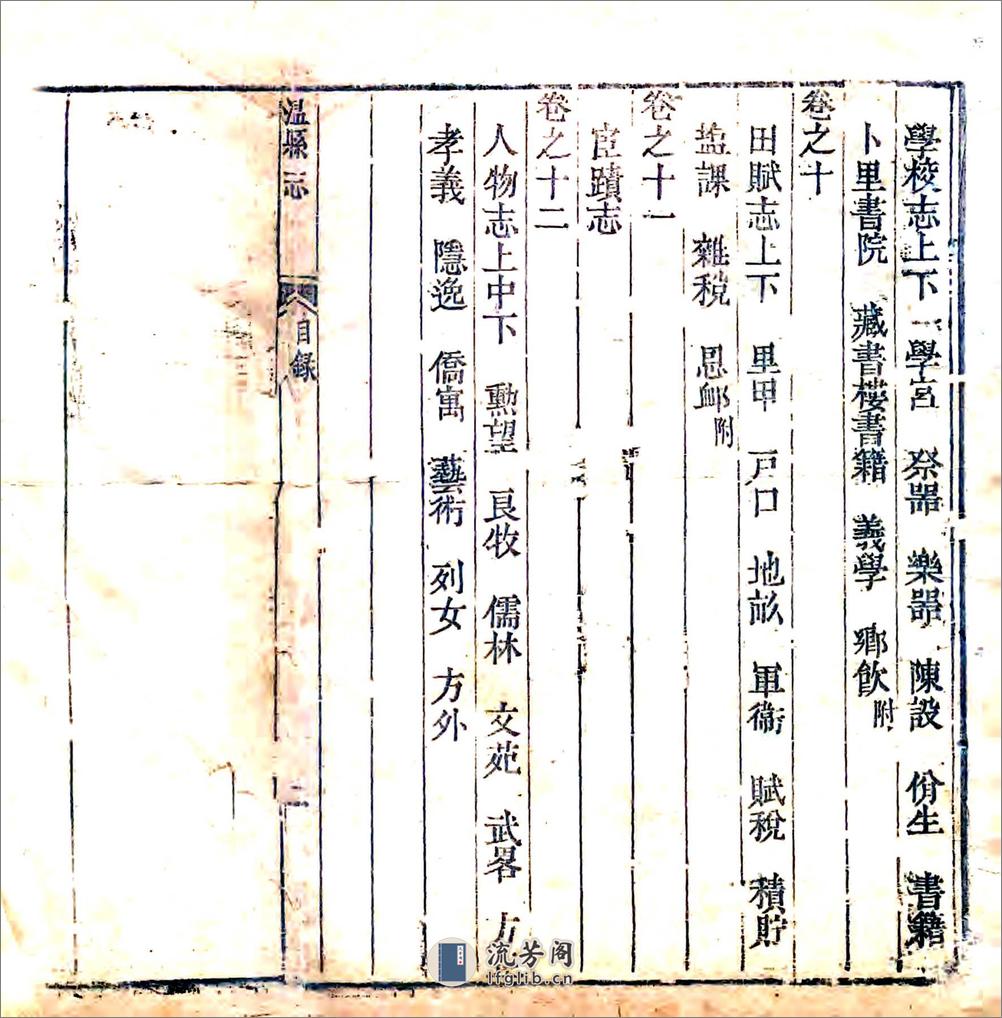 學校志上下 學宮 祭器 樂器 陳設 佾生 書籍
卜里書院 藏書樓書籍 義學 鄉飲附
卷之十
田賦志上下 里甲 戸口 地畝 軍衞 賦稅 積貯
盐課 雜稅 恩䘏附
卷之十一
宦蹟志
卷之十二
人物志上中下 勲望 良牧 儒林 文苑 武畧
孝義 隱逸 僑寓 藝術 列女 方外
溫縣志
目錄
二
流芳阁
lfglib.cn